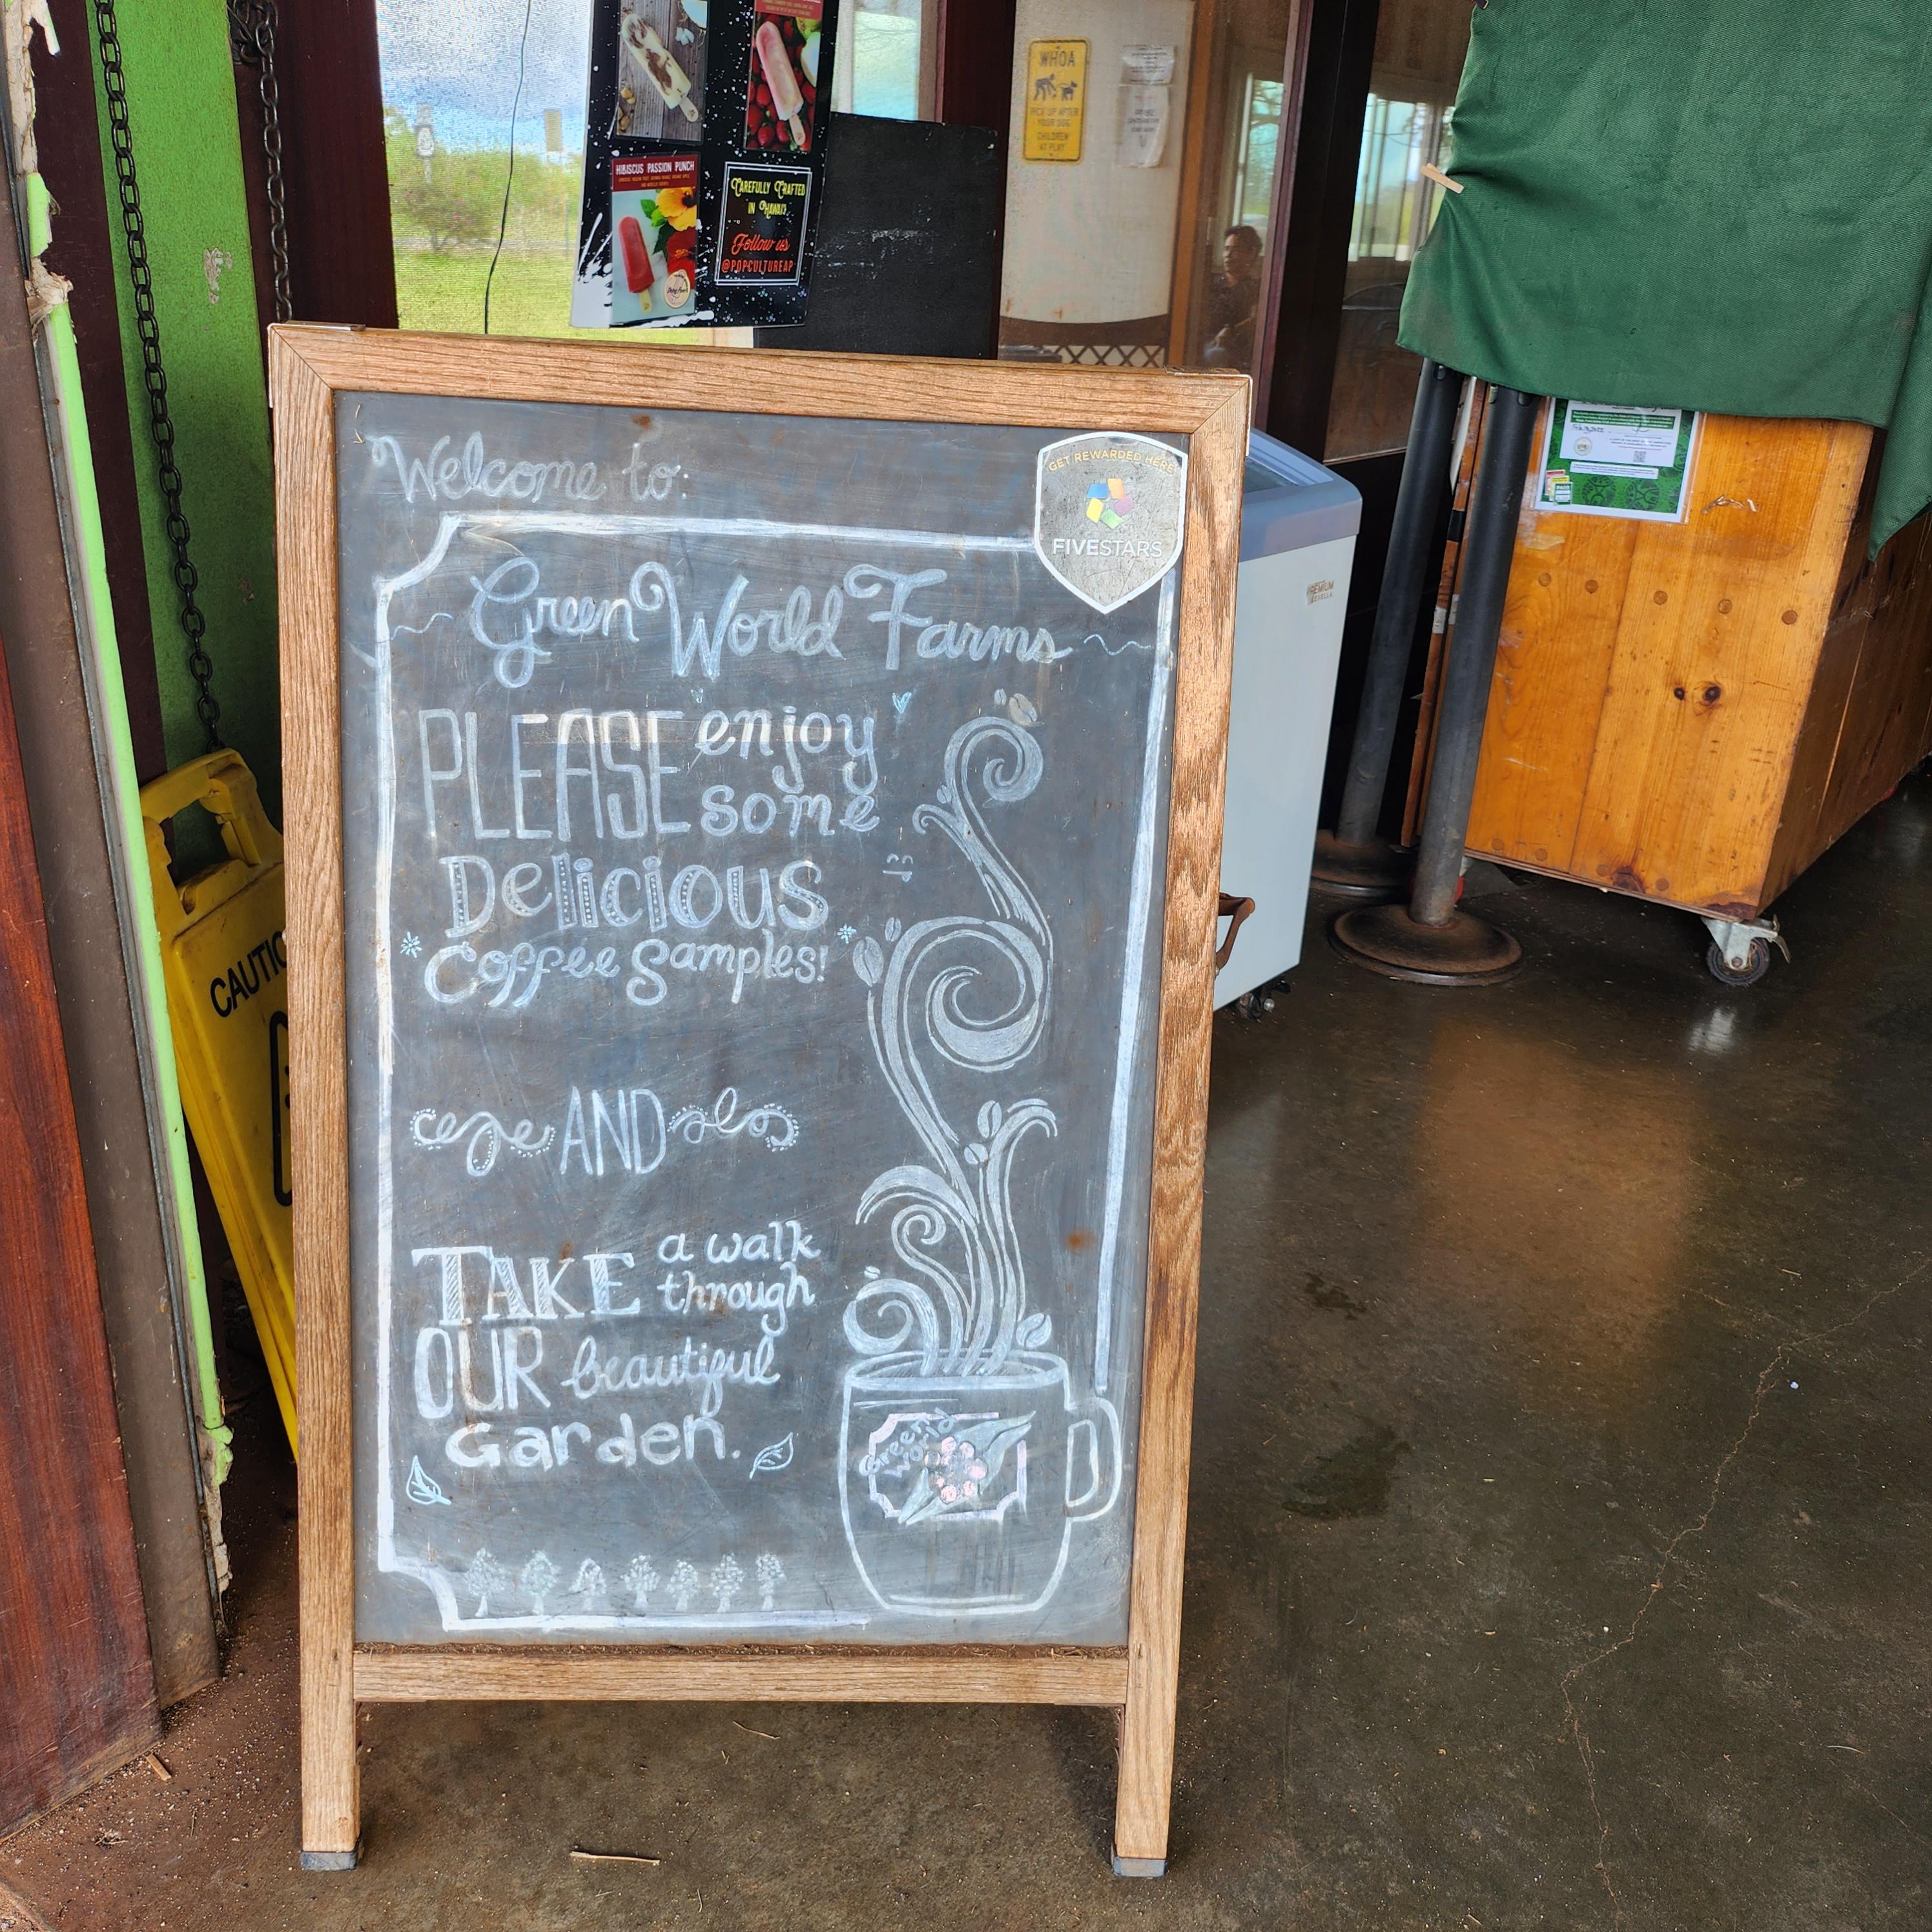 WHOA
PICK UP AFTER
YOUR DOG
CHILDREN
AT PLAY
HIBISCUS PASSION PUNCH
CAREFULLY CRAFTED
IN HAWAI'I
Follow us
@POPCULTUREAP
Welcome to:
GET REWARDED HERE
FIVESTARS
Green World Farms
PLEASE enjoy
some
Delicious
Coffee Samples!
AND
TAKE a walk
through
OUR beautiful
Garden.
Green
World
CAUTIO
PREMIUM